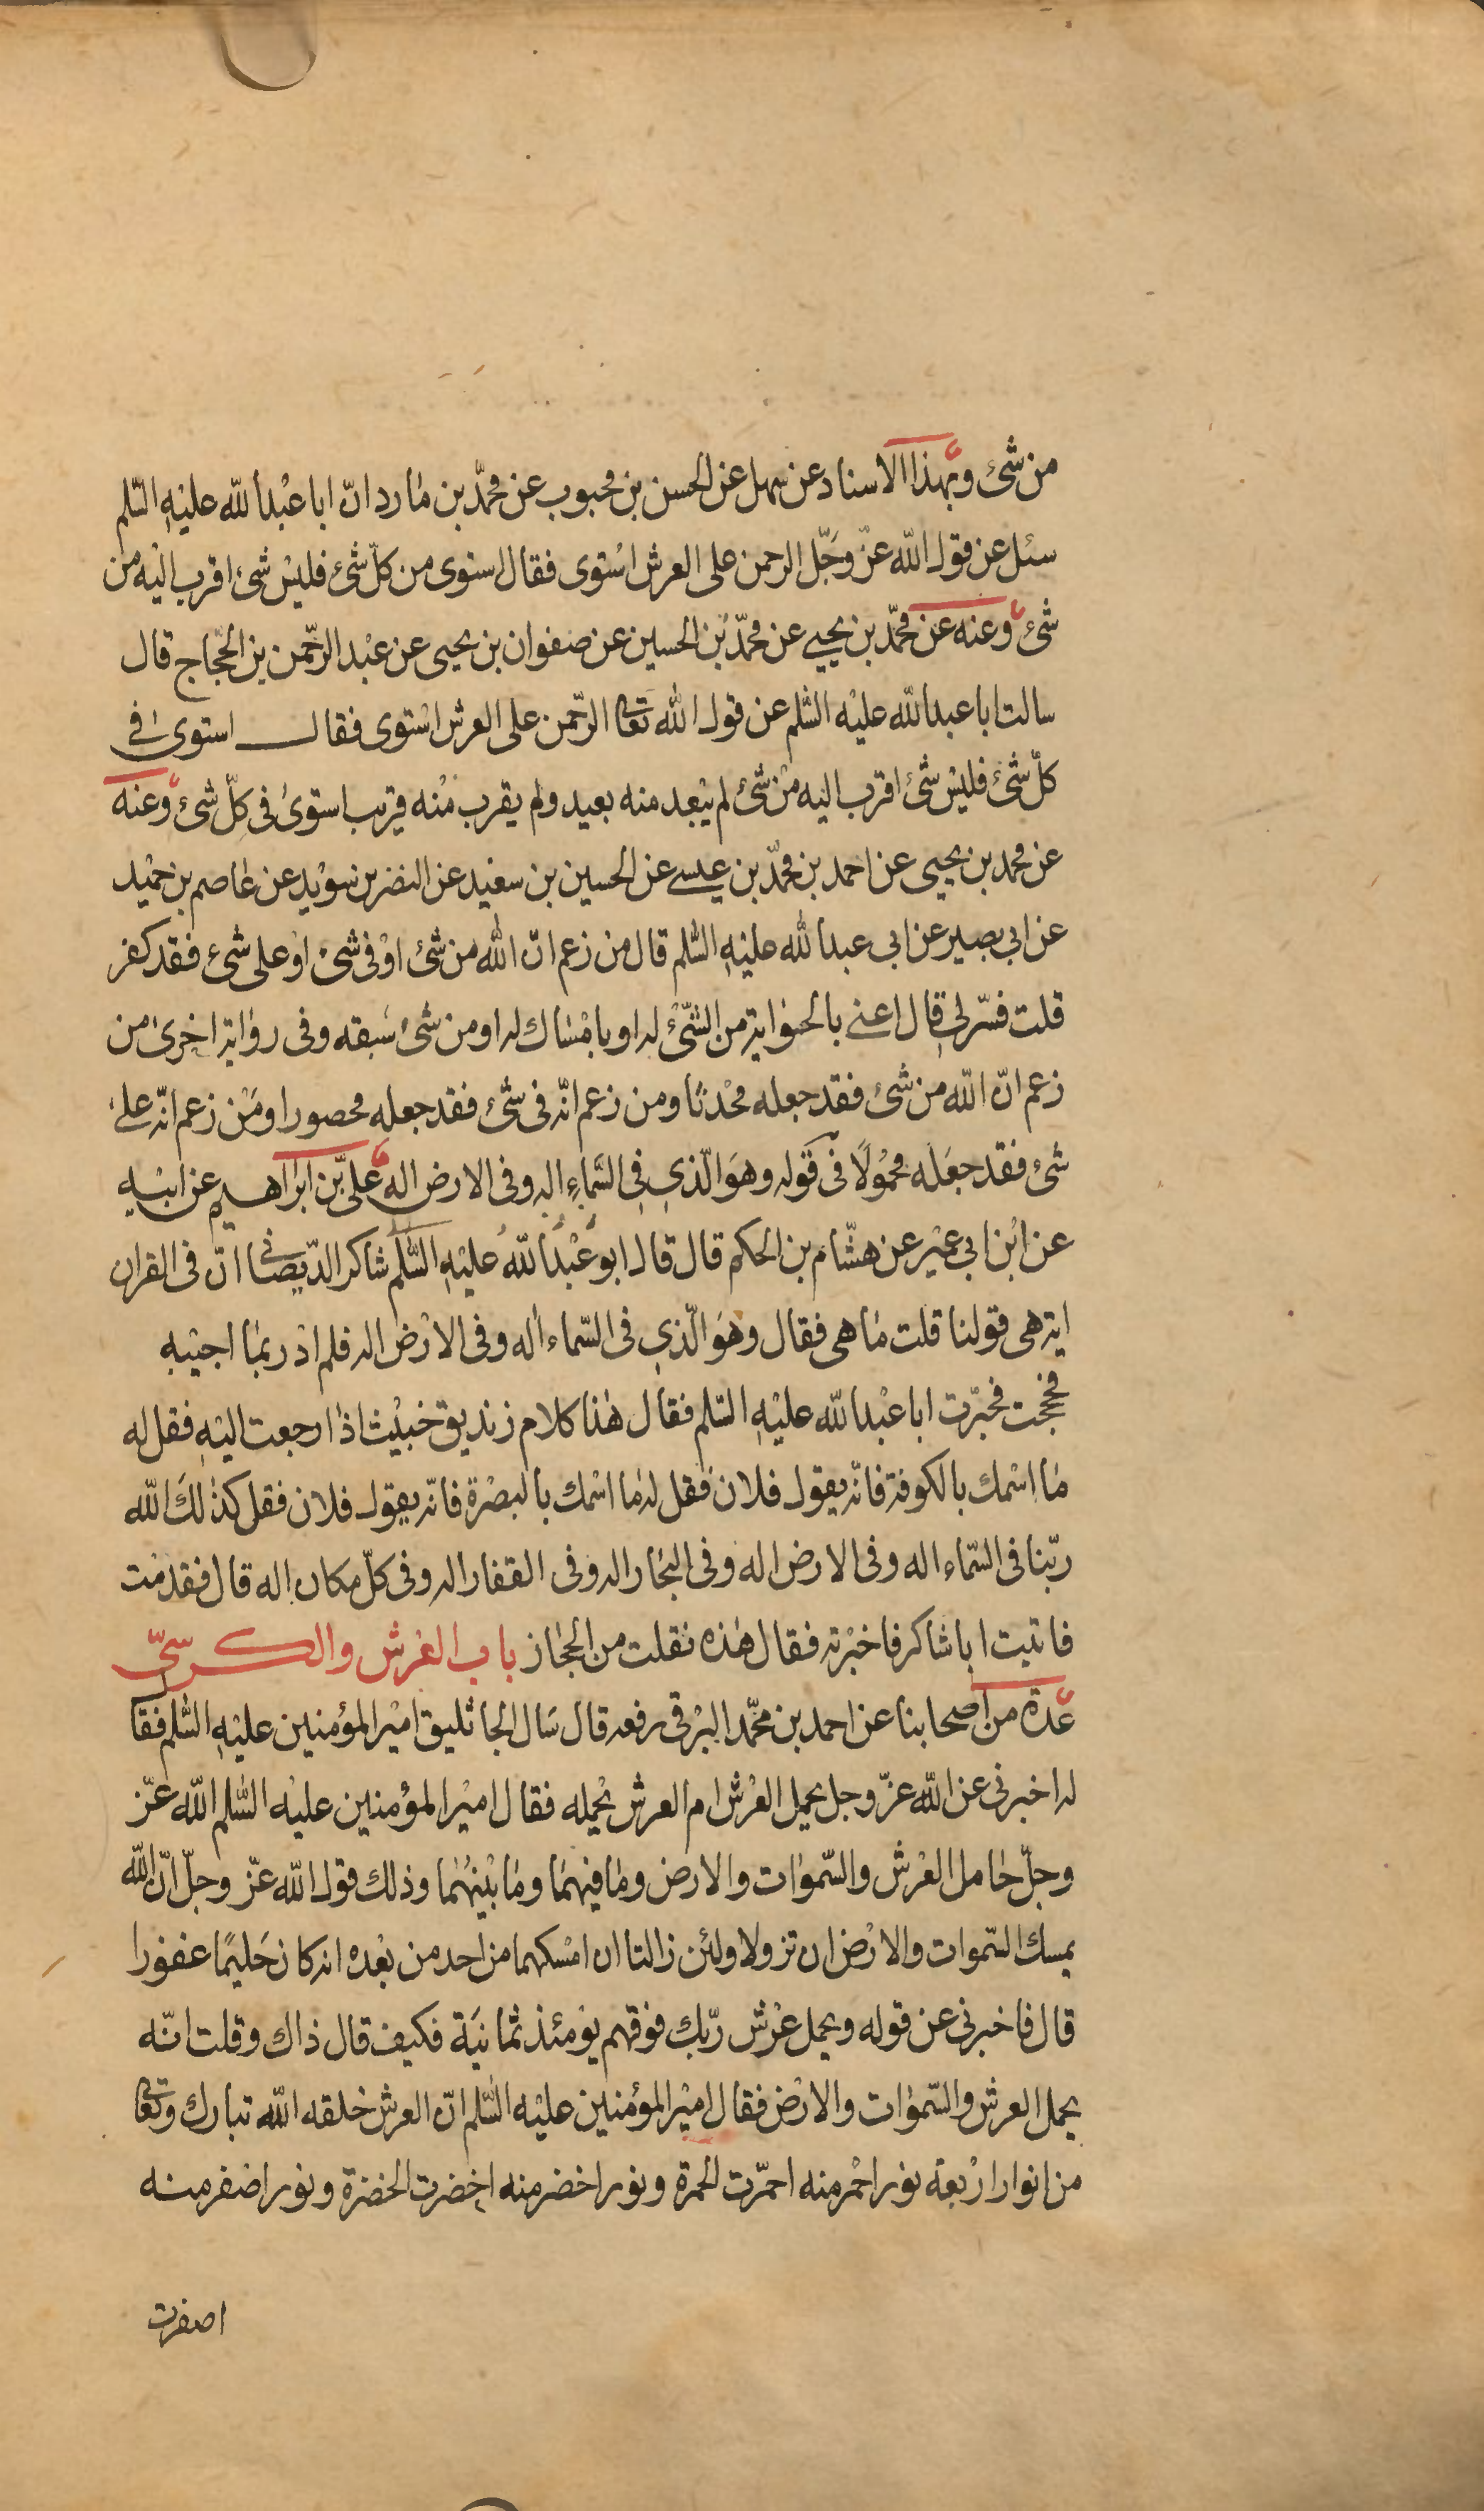 من شئ وبهذا الاسناد عن سهل عن الحسن بن محبوب عن محمّد بن مارد انّ ابا عبد الله عليه السّلم
سئل عن قول الله عزّ وجَلّ الرحمن على العرش استوى فقال استوى من كلّ شئ فليس شئ اقرب اليه من
شئ وعنه عن محمّد بن يحيى عن محمّد بن الحسين عن صفوان بن يحيى عن عبد الرّحمن بن الحجّاج قال
سالت ابا عبد الله عليه السّلم عن قول الله تعا الرّحمن على العرش استوى فقال استوى فى
كلّ شئ فليس شئ اقرب اليه من شئ لم يبعد منه بعيد ولم يقرب منه قريب استوى فى كلّ شئ وعنه
عن محمد بن يحيى عن احمد بن محمّد بن عيسى عن الحسين بن سعيد عن النضر بن سويد عن عاصم بن حميد
عن ابى بصير عن ابى عبد الله عليه السّلم قال من زعم انّ الله من شئ او فى شئ او على شئ فقد كفر
قلت فسّر لى قال اعنى بالحواية من الشّئ له او بامساك له او من شئ سبقه وفى رواية اخرى من
زعم انّ الله من شئ فقد جعله محدثا ومن زعم انّه فى شئ فقد جعله محصورا ومن زعم انّه على
شئ فقد جعله محمولا فى قوله وهو الّذى فى السّماء اله وفى الارض اله علىّ بن ابراهيم عن ابيه
عن ابن ابى عمير عن هشّام بن الحكم قال قال ابو عبد الله عليه السّلم شاكر الدّيصانى انّ فى القران
اية هى قولنا قلت ما هى فقال وهو الّذى فى السّماء اله وفى الارض اله فلم ادر بما اجيبه
فحججت فخبّرت ابا عبد الله عليه السّلم فقال هذا كلام زنديق خبيث اذا رجعت اليه فقل له
ما اسمك بالكوفة فانّه يقول فلان فقل له ما اسمك بالبصرة فانّه يقول فلان فقل كذلك الله
ربّنا فى السّماء اله وفى الارض اله وفى البحار اله وفى القفار اله وفى كلّ مكان اله قال فقدمت
فاتيت ابا شاكر فاخبرته فقال هذه نقلت من الحجاز باب العرش والكرسىّ
عدة من اصحابنا عن احمد بن محمّد البرقى رفعه قال سال الجاثليق امير المؤمنين عليه السّلم فقا
له اخبرنى عن الله عزّ وجل يحمل العرش ام العرش يحمله فقال امير المؤمنين عليه السّلم الله عزّ
وجلّ حامل العرش والسّموات والارض وما فيهما وما بينهما وذلك قول الله عزّ وجلّ انّ الله
يمسك السّموات والارض ان تزولا ولئن زالتا ان امسكهما من احد من بعده انه كان حليما غفورا
قال فاخبرنى عن قوله ويحمل عرش ربّك فوقهم يومئذ ثمانية فكيف قال ذاك وقلت انّه
يحمل العرش والسّموات والارض فقال امير المؤمنين عليه السّلم انّ العرش خلقه الله تبارك وتعا
من انوار اربعة نور احمر منه احمرّت الحمرة ونور اخضر منه اخضرت الخضرة ونور اصفر منه
اصفرت